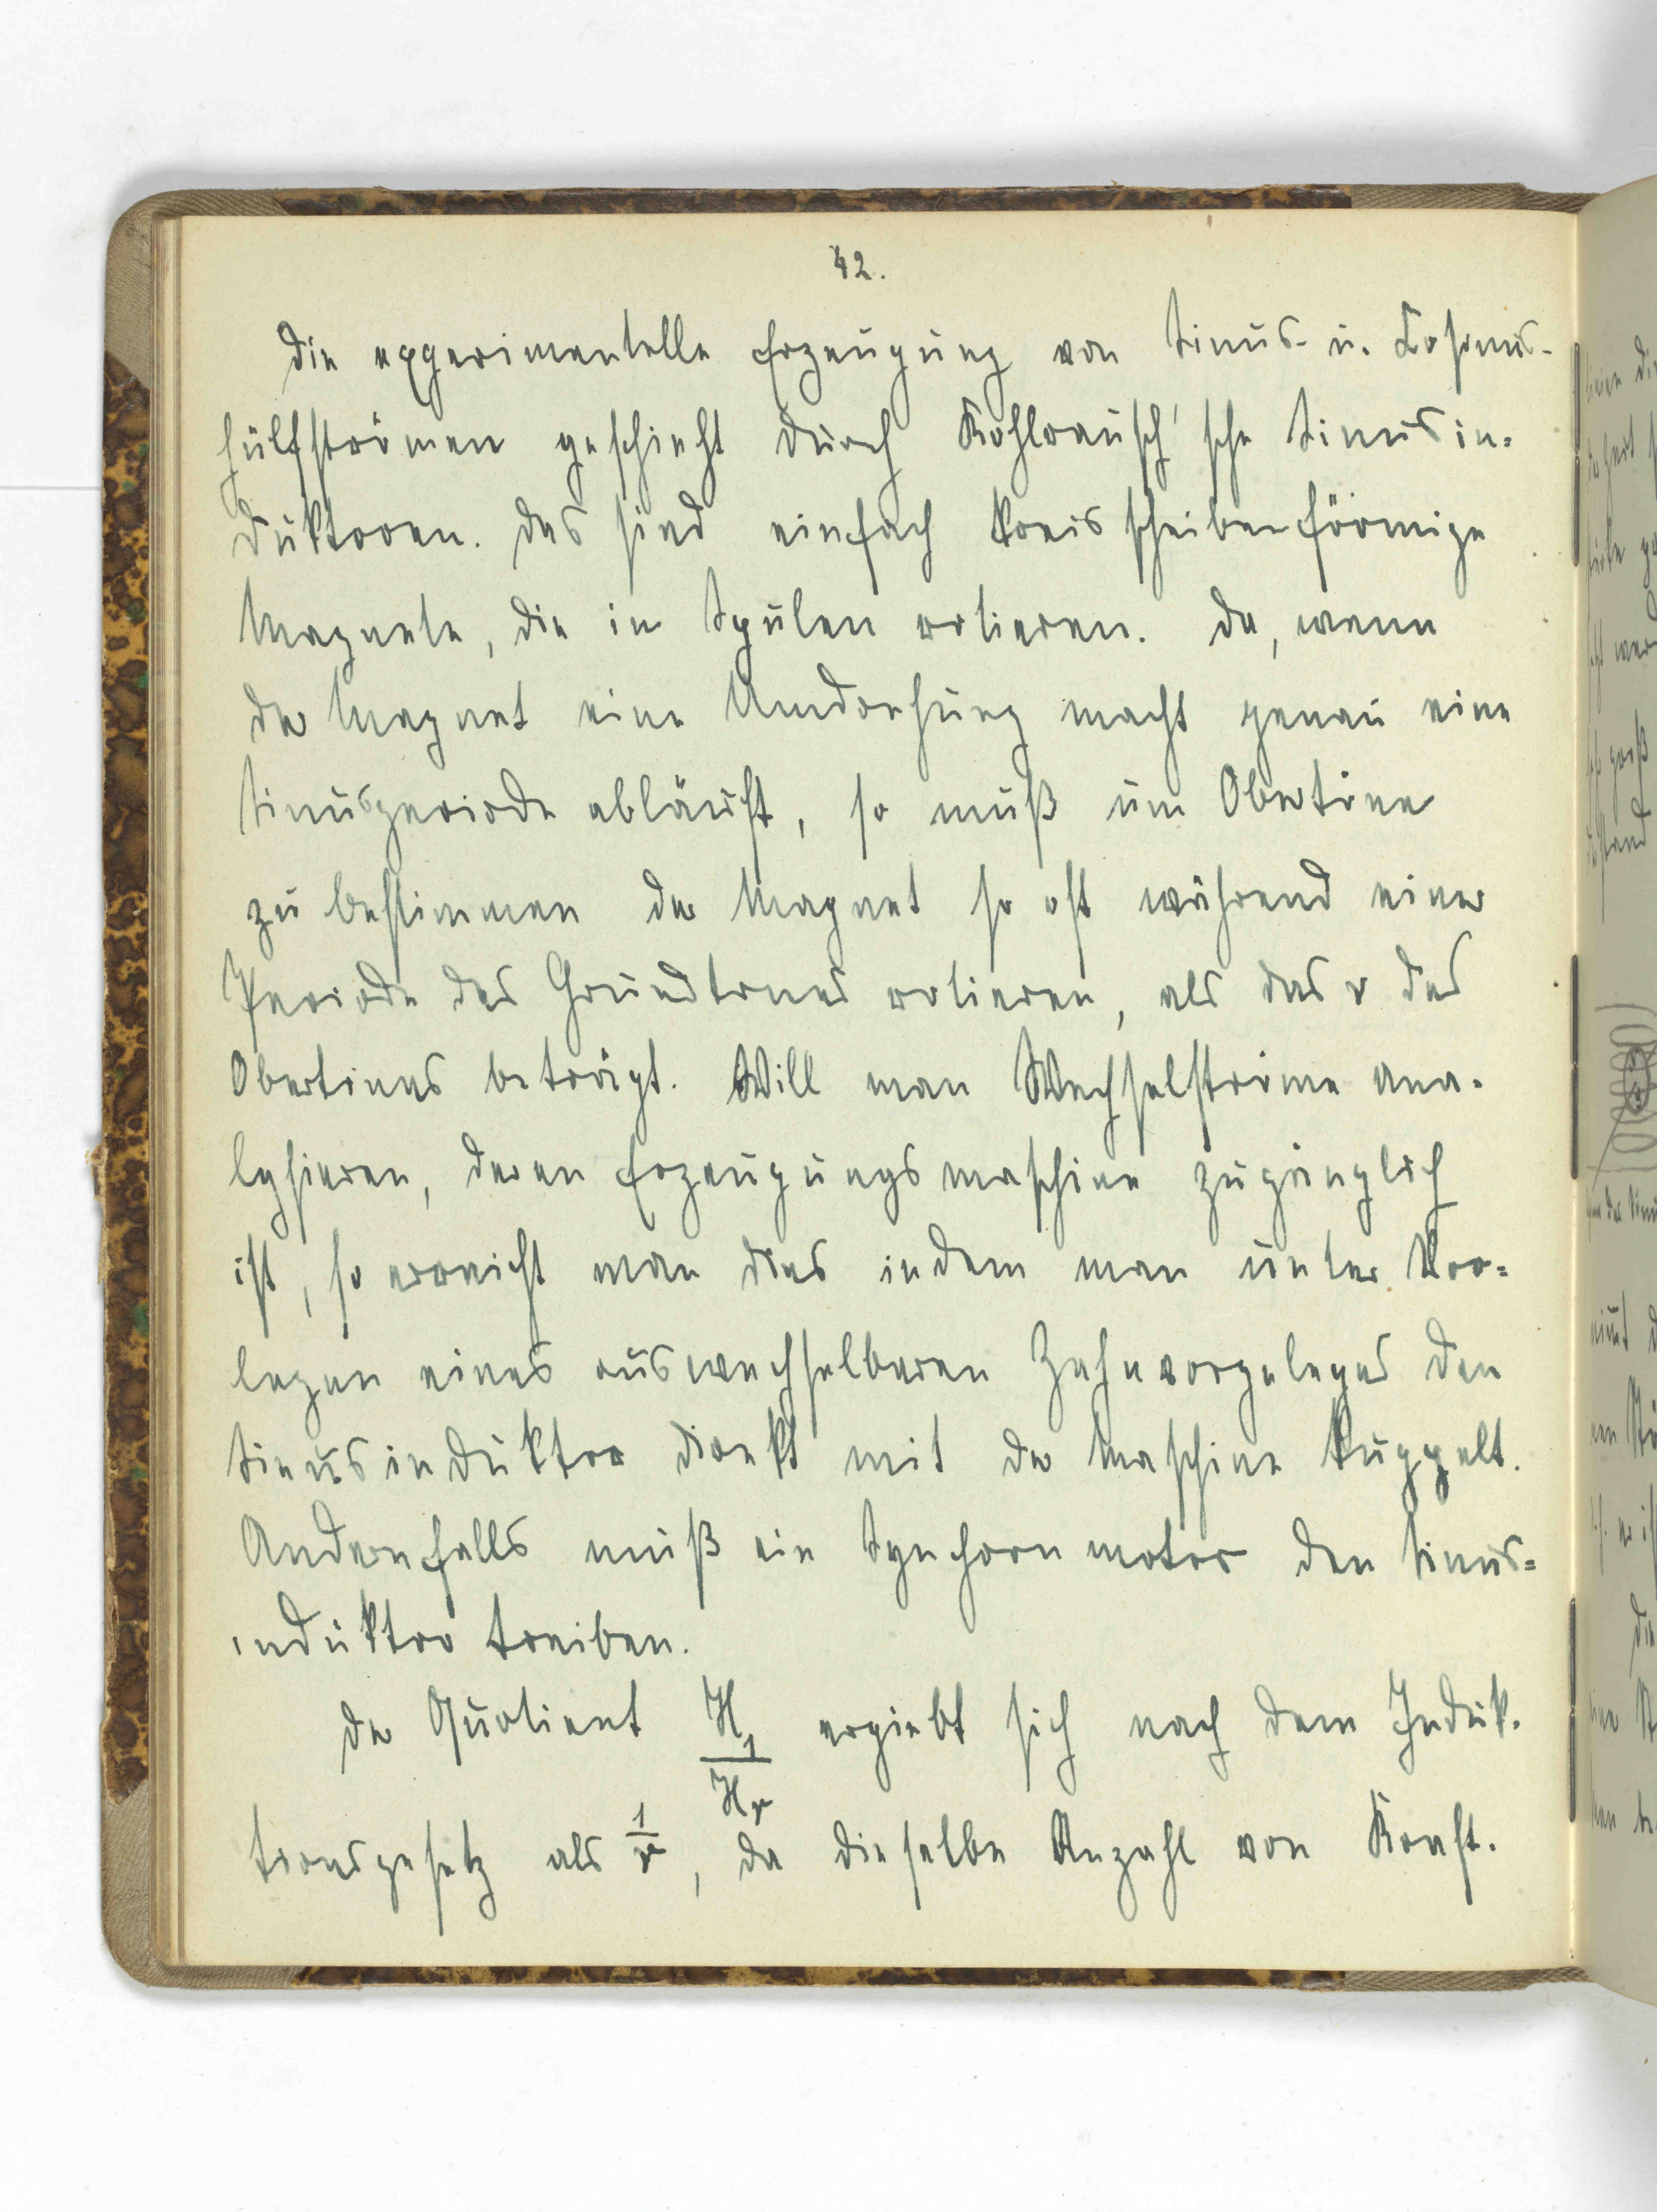 42.
Die experimentelle Erzeugung von Sinus- u. Kosinus-
hülfströmen geschieht durch Kohlrausch'sche Sinusin-
duktoren. Das sind einfach kreisscheibenförmige
Magnete, die in Spulen rotieren. Da, wenn
der Magnet eine Umdrehung macht genau eine
Sinusperiode abläuft, so muß um Obertöne
zu bestimmen der Magnet so oft während einer
Periode des Grundtones rotieren, als das ν des
Obertones beträgt. Will man Wechselströme ana-
lysieren, deren Erzeugungsmaschine zugänglich
ist, so erreicht man dies indem man unter Vor-
legen eines auswechselbaren Zahnvorgeleges den
Sinusinduktor direkt mit der Maschine kuppelt.
Andernfalls muß ein Synchronmotor den Sinus-
induktor treiben.
Der Quotient H₁/Hν ergiebt sich nach dem Induk-
tionsgesetz als 1/ν, da dieselbe Anzahl von Kraft-